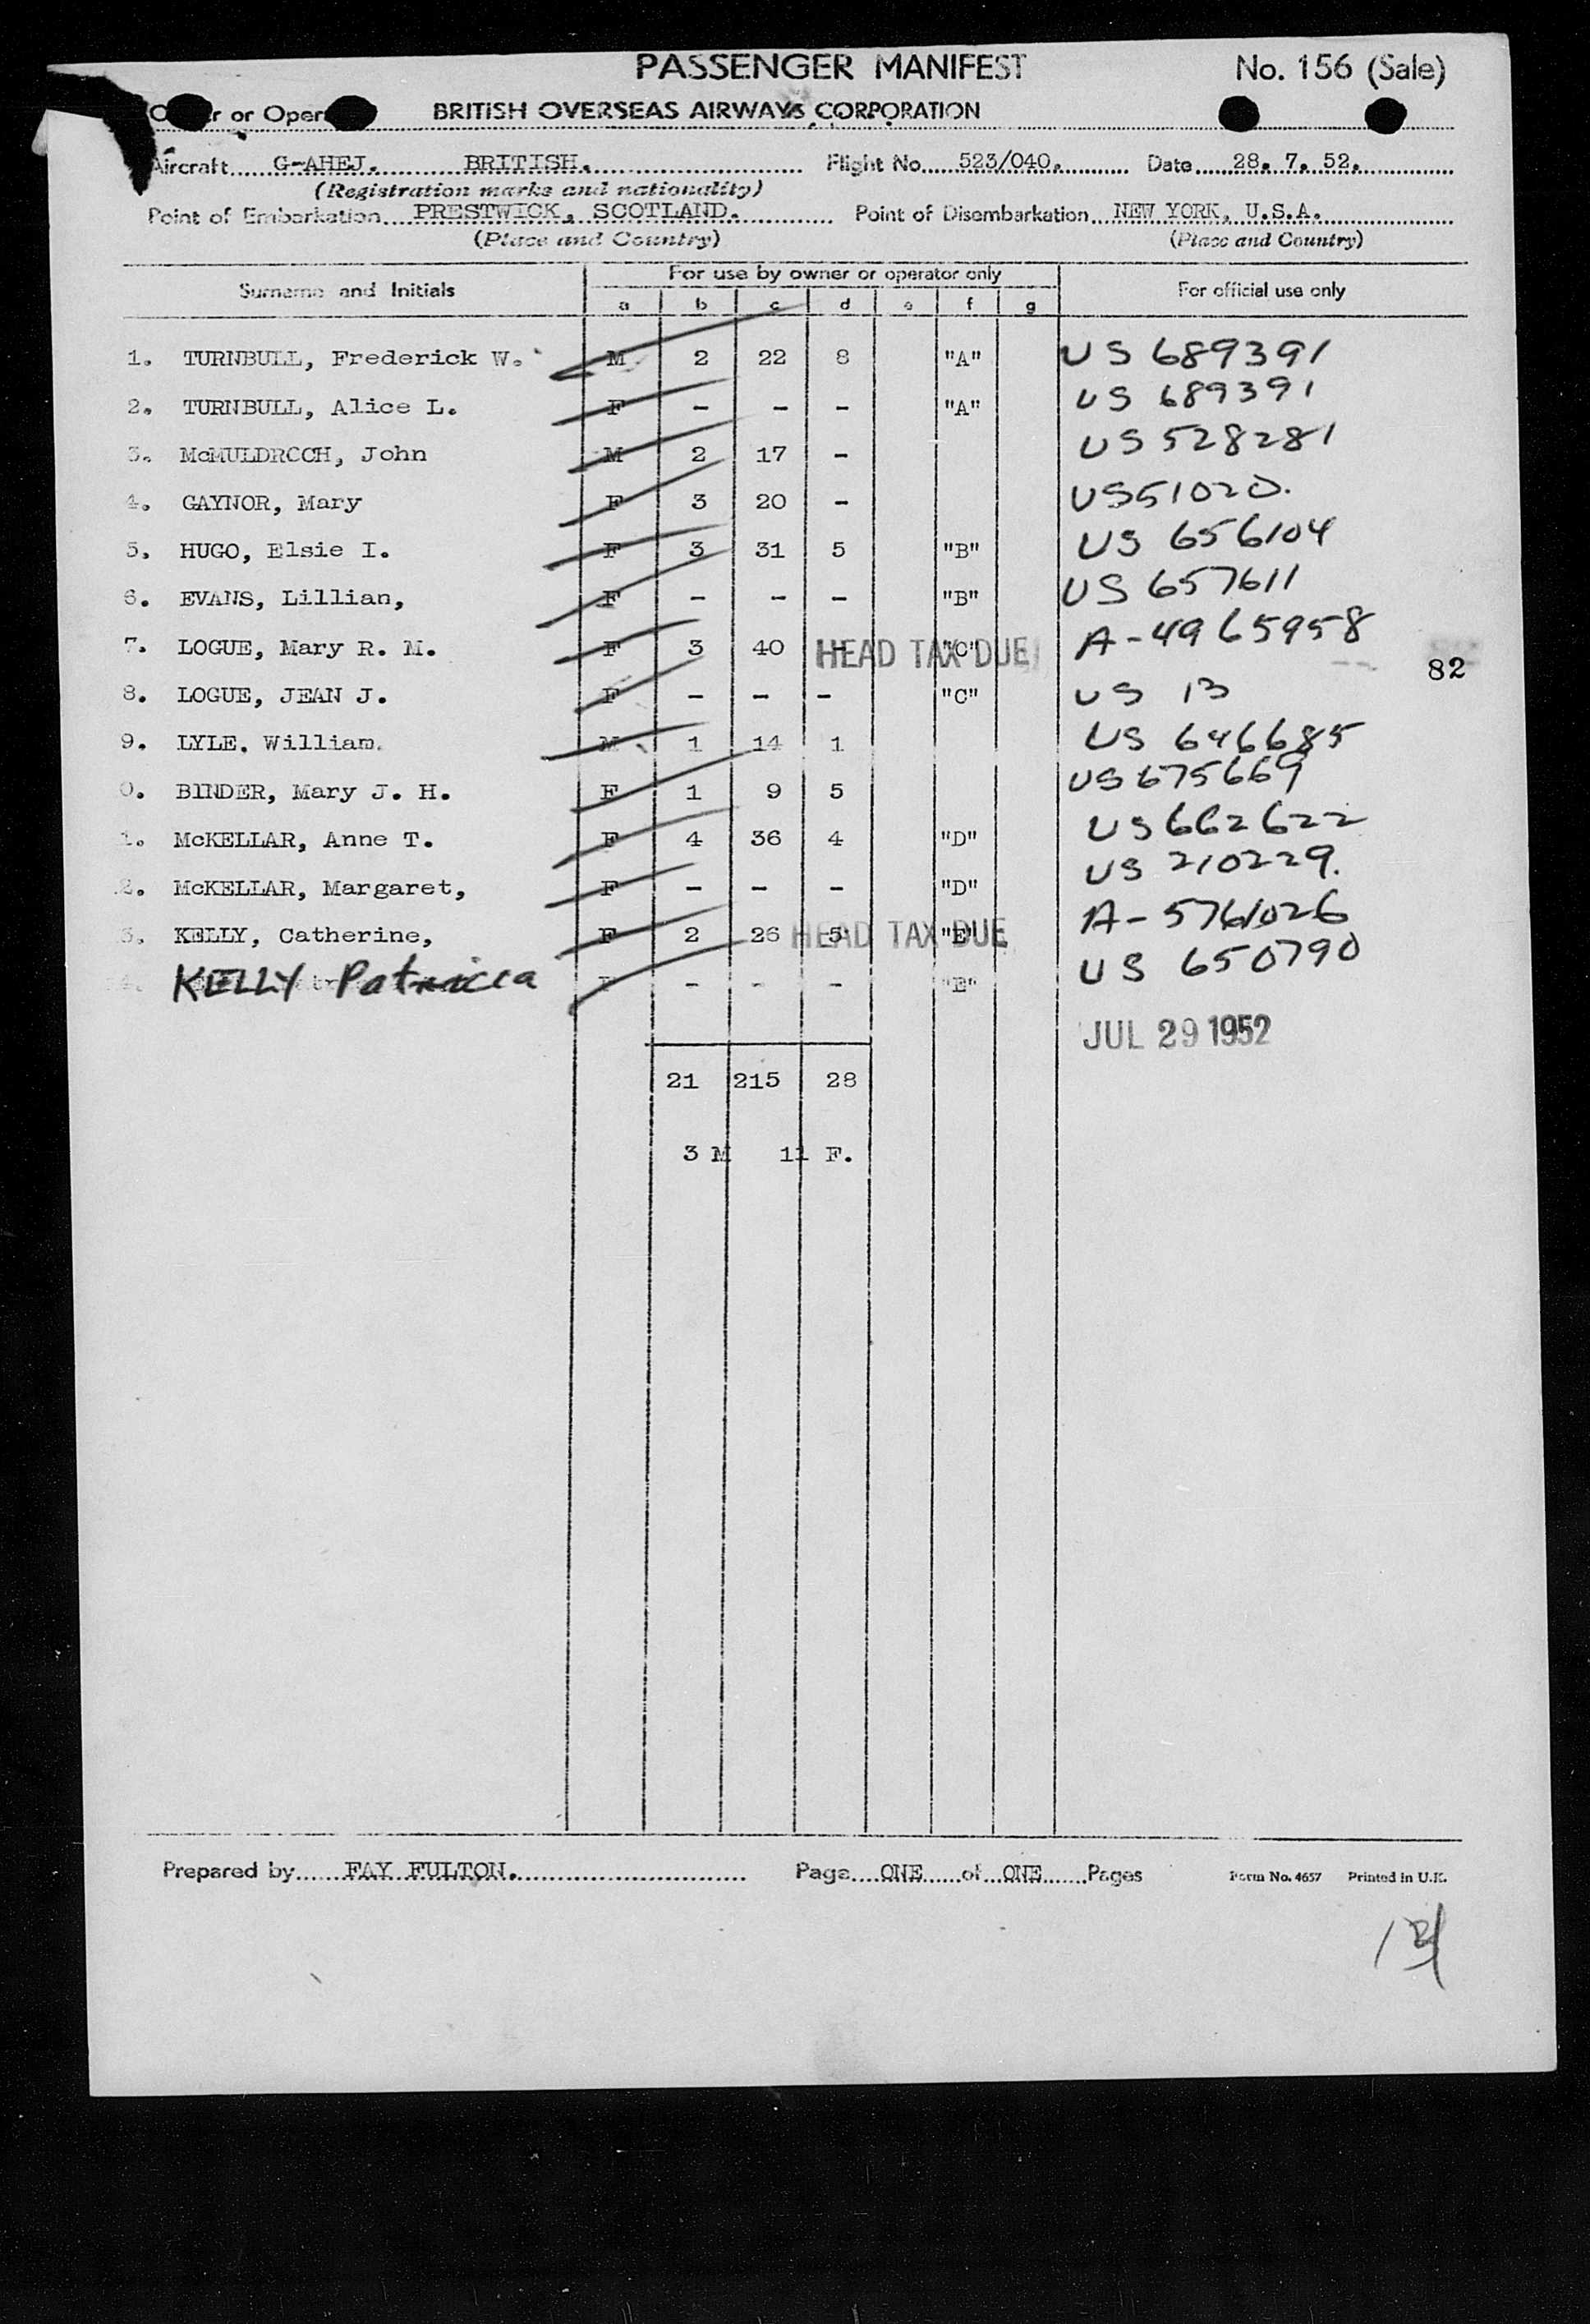 PASSENGER MANIFEST No. 156 (Sale)
or BRITISH OVERSEAS AIRWAYS CORPORATION
Aircraft G-AHEJ. BRITISH. Flight No. 523/040. Date 28. 7. 52.
(Registration marks and nationality)
Point of Embarkation PRESTWICK, SCOTLAND. Point of Disembarkation NEW YORK, U.S.A.
(Place and Country) (Place and Country)
Surname and Initials For use by owner or operator only For official use only
a b c d e f g
1. TURNBULL, Frederick W. M 2 22 8 "A" US 689391
2. TURNBULL, Alice L. F - - - "A" US 689391
3. McMULDROCH, John M 2 17 - US 528281
4. GAYNOR, Mary F 3 20 - US51020.
5. HUGO, Elsie I. F 3 31 5 "B" US 656104
6. EVANS, Lillian, F - - - "B" US 657611
7. LOGUE, Mary R. M. F 3 40 - "C" HEAD TAX DUE A-4965958
82
8. LOGUE, JEAN J. F - - - "C" US 13
9. LYLE, William. M 1 14 1 US 646685
0. BINDER, Mary J. H. F 1 9 5 US 675669
1. McKELLAR, Anne T. F 4 36 4 "D" US 662622
2. McKELLAR, Margaret, F - - - "D" US 210229.
3. KELLY, Catherine, F 2 26 5 "E" HEAD TAX DUE A-5761026
KELLY Patricia - - - "E" US 650790
JUL 29 1952
21 215 28
3 M 11 F.
Prepared by FAY FULTON. Page ONE of ONE Pages Form No. 4657 Printed in U.K.